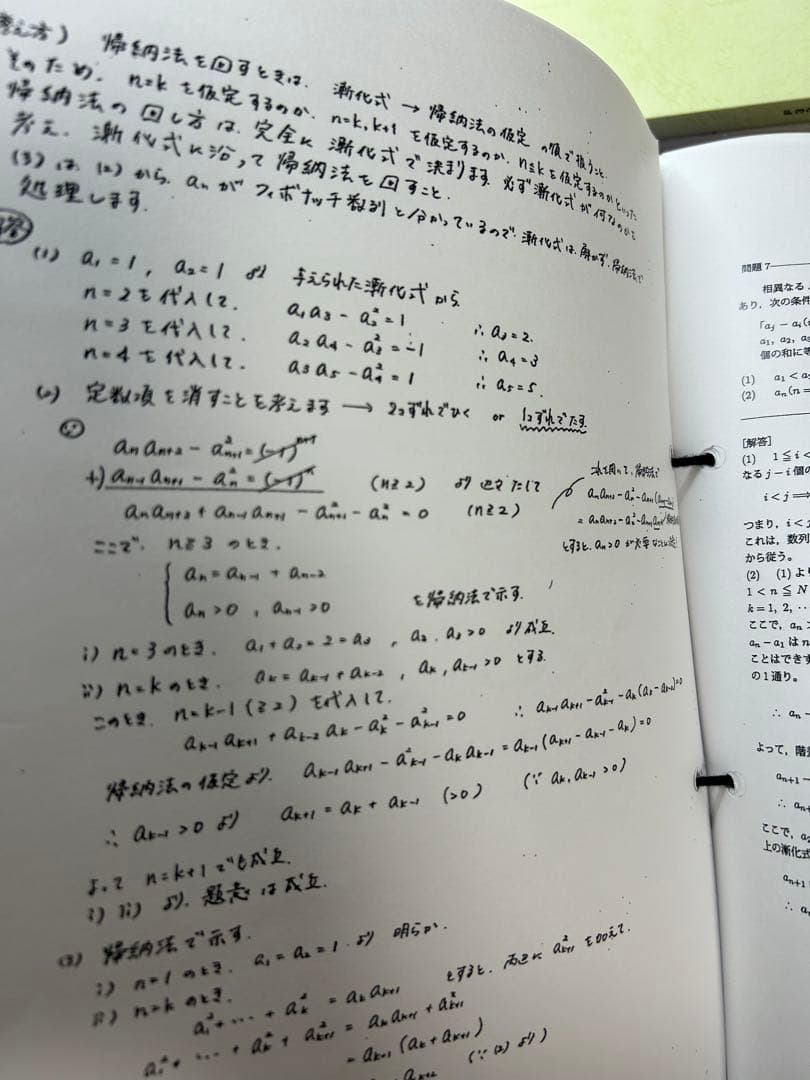 考え方) 帰納法を回すときは、漸化式 → 帰納法の仮定 の順で扱うこと。
そのため、n=kを仮定するのか、n=k,k+1を仮定するのか、n≦kを仮定するのかといった
帰納法の回し方は、完全に漸化式で決まります。必ず漸化式が何なのかを
考え、漸化式に沿って帰納法を回すこと。
(3)は、(2)から、anがフィボナッチ数列と分かっているので、漸化式は解かず、帰納法で
処理します。
(1) a1=1, a2=1 より 与えられた漸化式から
n=2を代入して、 a1a3-a2²=1 ∴a3=2.
n=3を代入して、 a2a4-a3²=-1 ∴a4=3
n=4を代入して、 a3a5-a4²=1 ∴a5=5.
(2) 定数項を消すことを考えます → 2コずれでひく or 1コずれでたす
an an+2 - a²n+1 = (-1)ⁿ⁺¹
+) an-1 an+1 - a²n = (-1)ⁿ (n≧2) より 辺々たして
an an+2 + an-1 an+1 - a²n+1 - a²n = 0 (n≧2)
ここで、n≧3のとき、
an = an-1 + an-2
an>0, an-1>0 を帰納法で示す.
i) n=3のとき、 a1+a2=2=a3, a2, a3>0 より成立.
ii) n=kのとき、 ak=ak-1+ak-2, ak, ak-1>0 とする
このとき、n=k-1(≧2)を代入して、
ak-1 ak+1 + ak-2 ak - a²k - a²k-1 = 0 ∴ ak-1 ak+1 - a²k-1 - ak(ak - ak-2)=0
帰納法の仮定より、 ak-1 ak+1 - a²k-1 - ak ak-1 = ak-1(ak+1 - ak-1 - ak)=0
∴ ak-1>0 より ak+1 = ak + ak-1 (>0) (∵ ak, ak-1>0)
よって n=k+1でも成立.
i) ii) より、題意は成立.
(3) 帰納法で示す.
i) n=1のとき、a1=a2=1 より 明らか.
ii) n=kのとき、
a1²+…+ak² = ak ak+1 とすると、両辺に a²k+1 を加えて、
a1²+…+ak²+a²k+1 = ak ak+1 + a²k+1
= ak+1(ak + ak+1)
ak+2 (∵(2)より)
問題 7
相異なる
あり，次の条件
個の和に等
(1) a1 < a
(2) an (n =
[解答]
(1) 1 ≦ i <
なる j − i 個の
i < j ⟹
つまり，i < j
これは，数列
から従う。
(2) (1) より
1 < n ≦ N
k = 1, 2, ‥
ここで，an >
an − a1 は n
ことはできず
の 1 通り。
∴ an −
よって，階差
an+1 −
∴ an+
ここで，a2
上の漸化式
an+1
∴ a